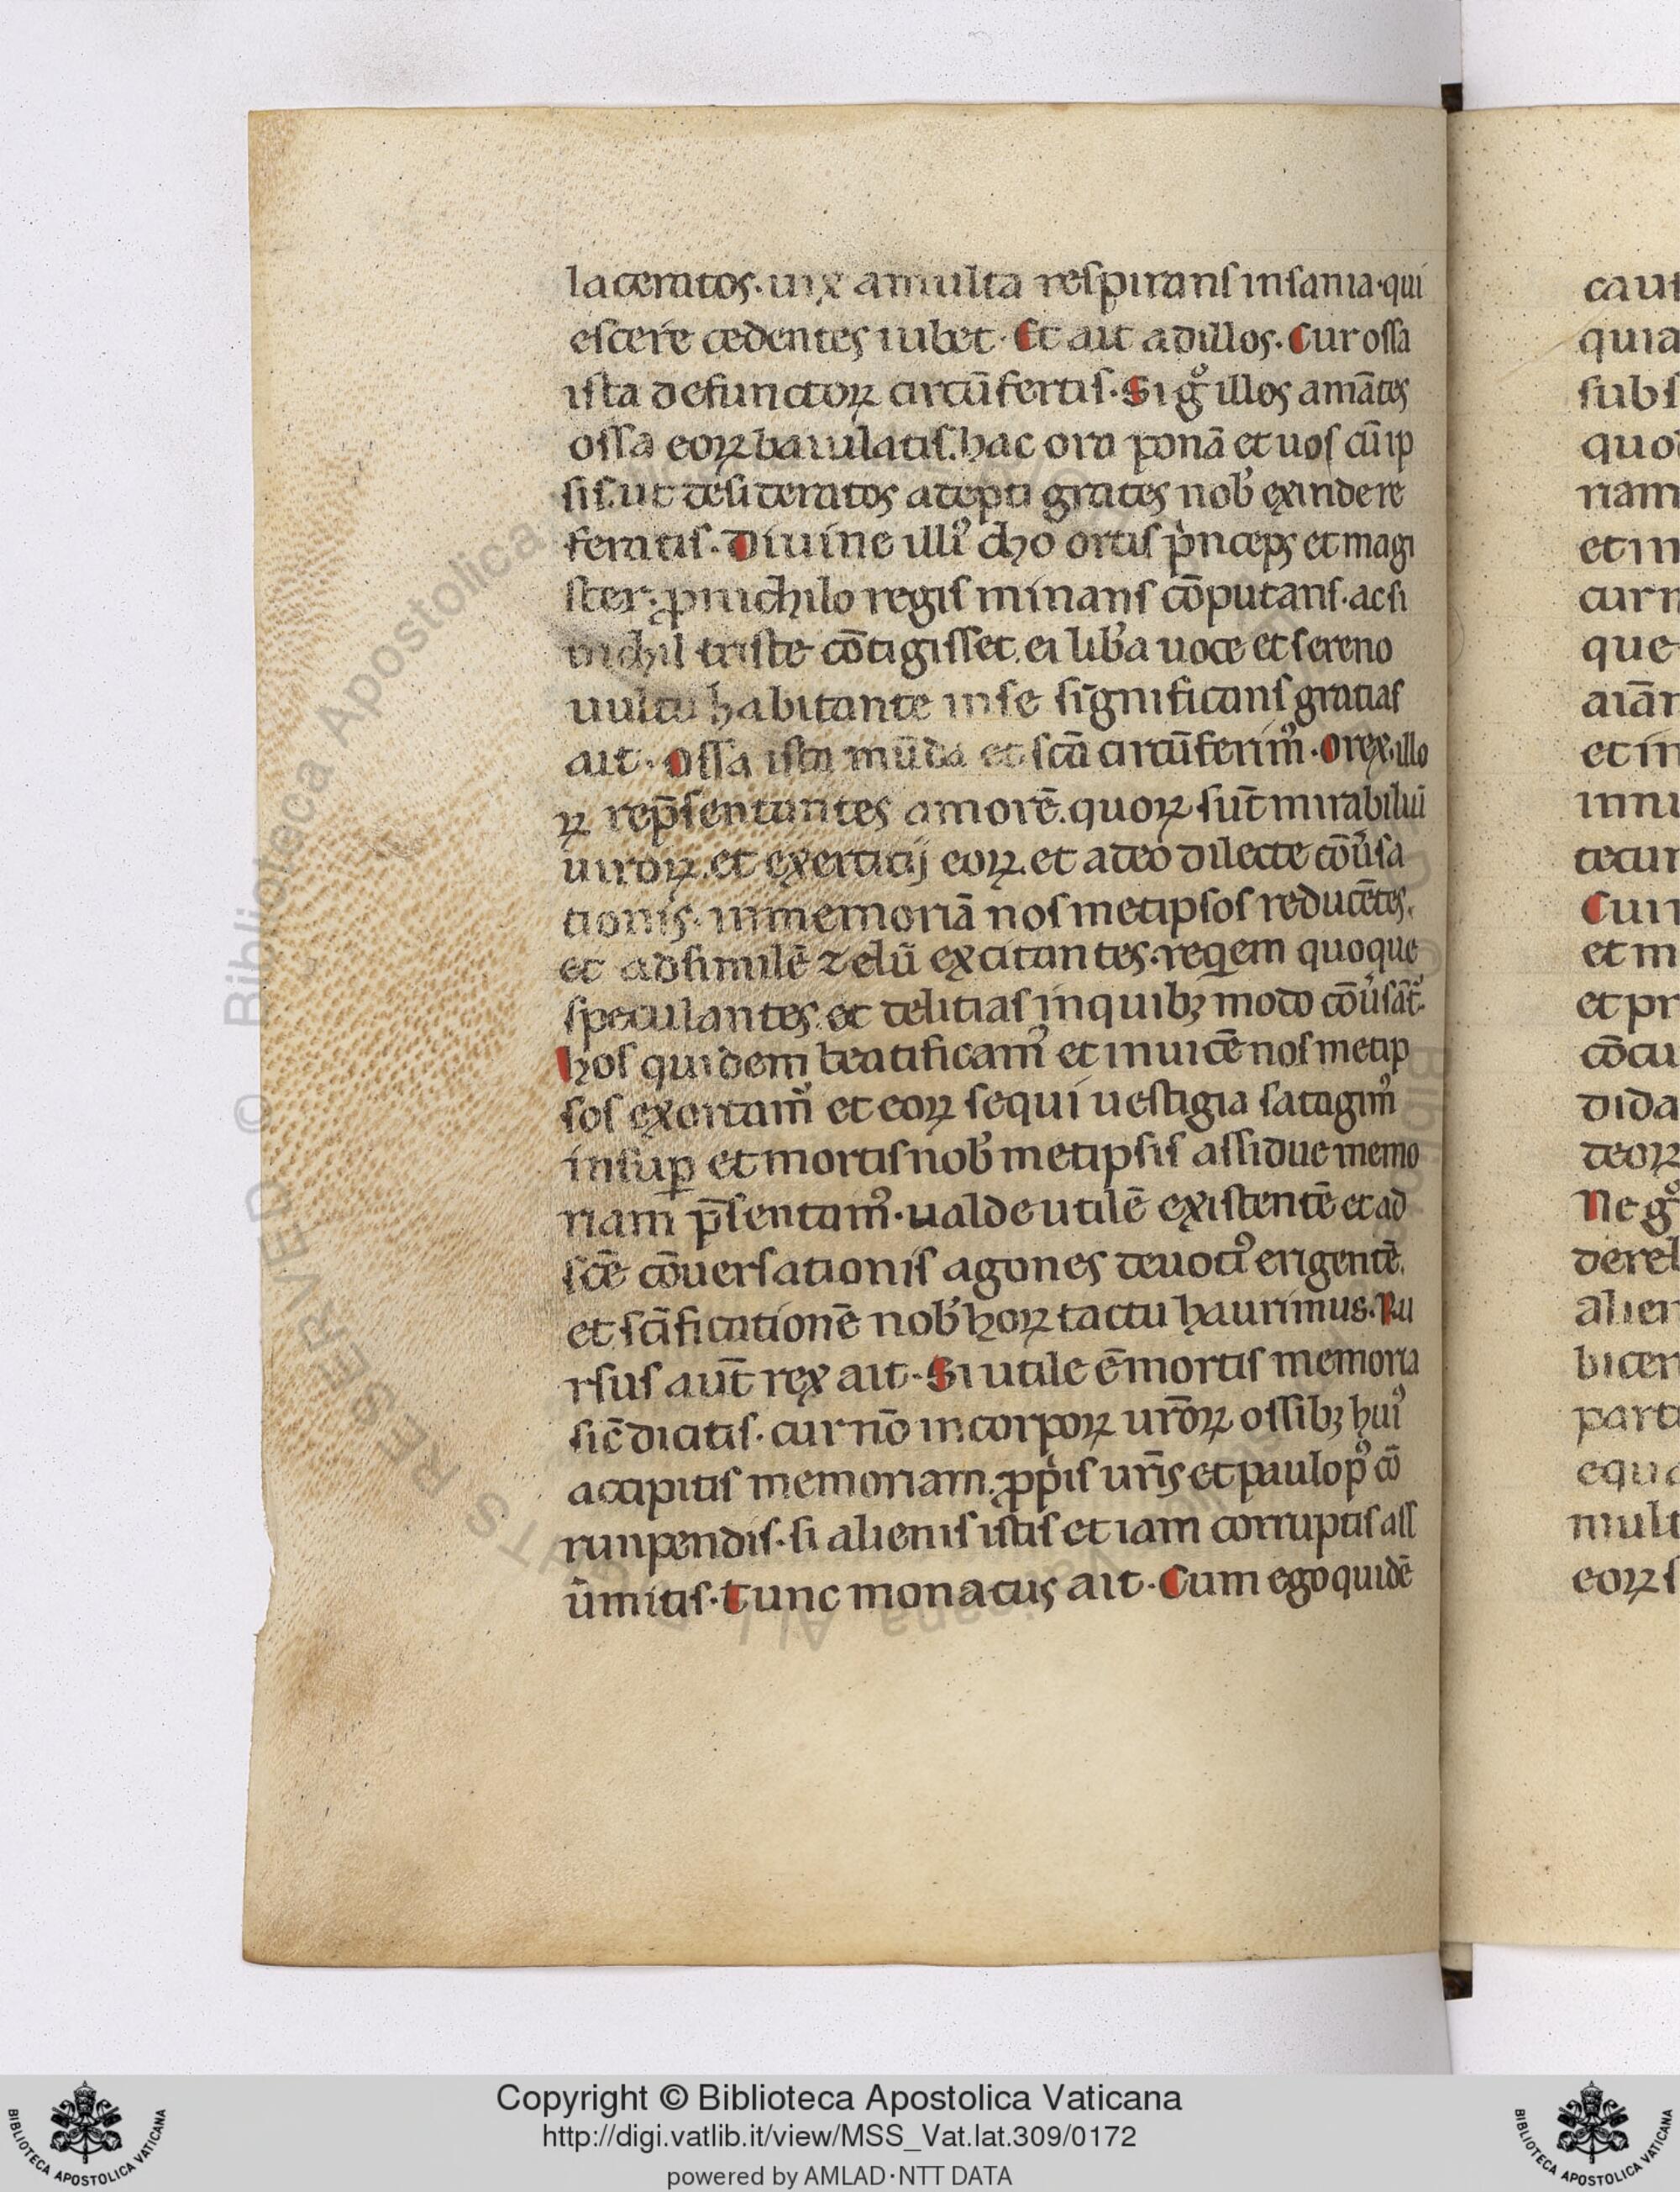 laceratos. uix a multa respirans insania. qui
escere cedentes iubet. Et ait ad illos. Cur ossa
ista defunctoꝝ circūfertis. Si gͦ illos amātes
ossa eoꝝ baiulatis. hac ora ponā et uos cū ip
sis. ut desideratos adepti grates nob̓ exinde re
feratis. Diuine illi᷒ choortis p̍nceps et magi
ster. ꝓ nichilo regis minans cōputans. ac si
nichil triste cōtigisset. ei lib̓a uoce et sereno
uultu habitante in se significans gratias
ait. Ossa ista mūda et sc̄a circūferim᷒. O rex. illo
ꝝ rep̄sentantes amorē. quoꝝ sūt mirabiliū
uiroꝝ. et exercitij eoꝝ. et a deo dilecte cōu̓sa
tionis. in memoriā nos metipsos reducētes.
et ad similē zelū excitantes. req̄em quoque
speculantes. et delitias in quibꝫ modo cōu̓sāt̓.
hos quidem beatificam᷒ et inuicē nos metip
sos exortam᷒ et eoꝝ sequi uestigia satagim᷒
insuꝑ et mortis nob̓ metipsis assidue memo
riam p̄sentam᷒. ualde utilē existentē et ad
sc̄e cōuersationis agones deuoti᷒ erigentē.
et sc̄ificationē nob̓ hoꝝ tactu haurimus. Ru
rsus aūt rex ait. Si utile ē mortis memoria
sic̄ dicitis. cur nō in corpoꝝ ur̄oꝝ ossibꝫ hui᷒
accipitis memoriam. ꝓp̍is ur̄is et paulo p᷒ cō
runpendis. si alienis istis et iam corruptis ass
u̓mitis. Tunc monacus ait. Cum ego quidē
caui
quia
subs
quo
riam
et in
carn
que
aiān
et in
innu
tecum
Cum
et m
et pr
cōcu
dida
deoꝝ
Ne gͦ
derel
alien
bicen
parti
equa
mult
eoꝝ s
© Biblioteca Apostolica
RESERVED
Copyright © Biblioteca Apostolica Vaticana
http://digi.vatlib.it/view/MSS_Vat.lat.309/0172
powered by AMLAD·NTT DATA
BIBLIOTECA APOSTOLICA VATICANA
BIBLIOTECA APOSTOLICA VATICANA